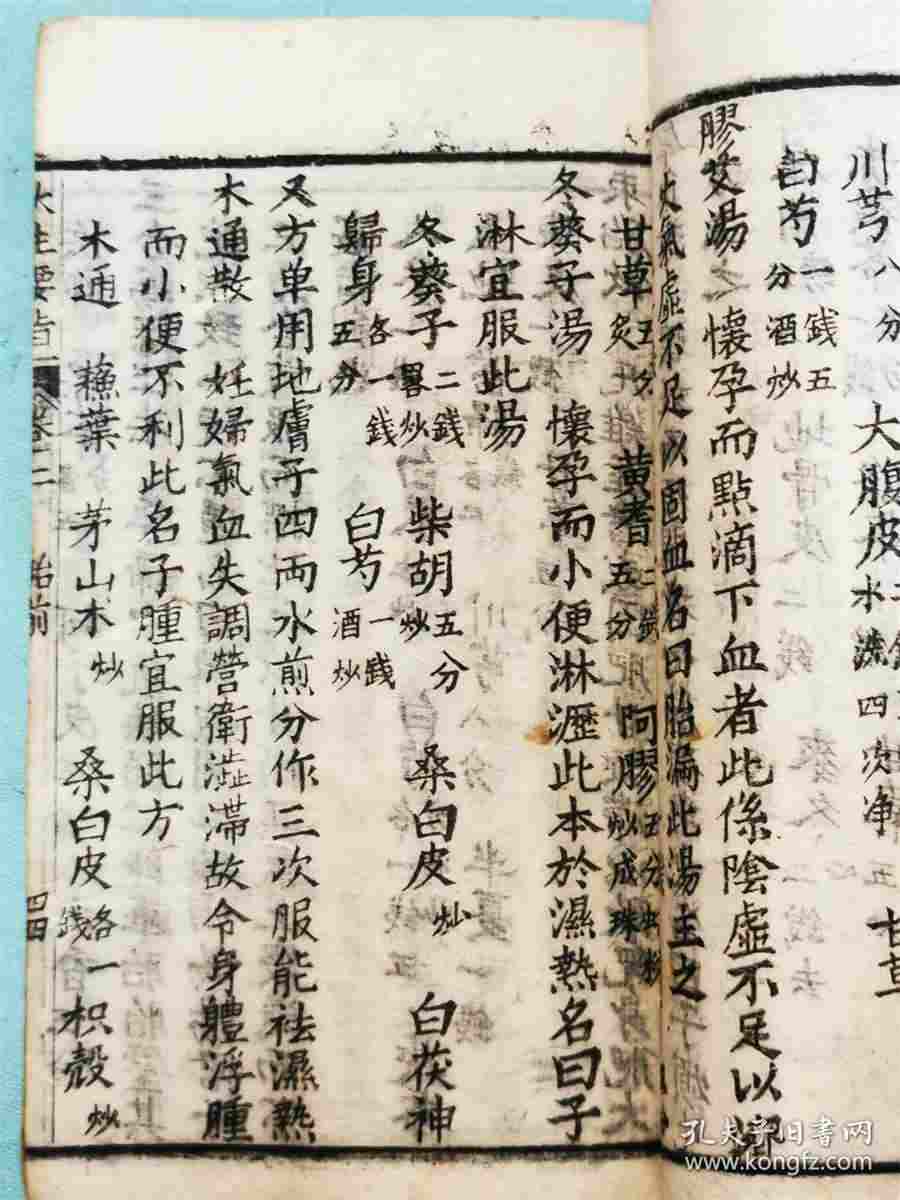 川芎八分 大腹皮 水洗四次净 甘草
白芍一錢五分酒炒
膠艾湯 懷孕而點滴下血者此係陰虛不足以
氣虛不足以固血名曰胎漏此湯主之
甘草 炙 黄耆 五分 阿膠 五分 炒成珠
冬葵子湯 懷孕而小便淋瀝此本於濕熱名曰子
淋宜服此湯
冬葵子二錢畧炒 柴胡五分炒 桑白皮炒 白茯神
歸身各一錢五分 白芍一錢酒炒
又方单用地膚子四両水煎分作三次服能祛濕熱
木通散 妊婦氣血失調營衛澁滞故令身體浮腫
而小便不利此名子腫宜服此方
木通 蘓葉 茅山术炒 桑白皮各一錢 枳殼炒
生要旨 卷二 胎前 四四
孔夫子旧书网
www.kongfz.com